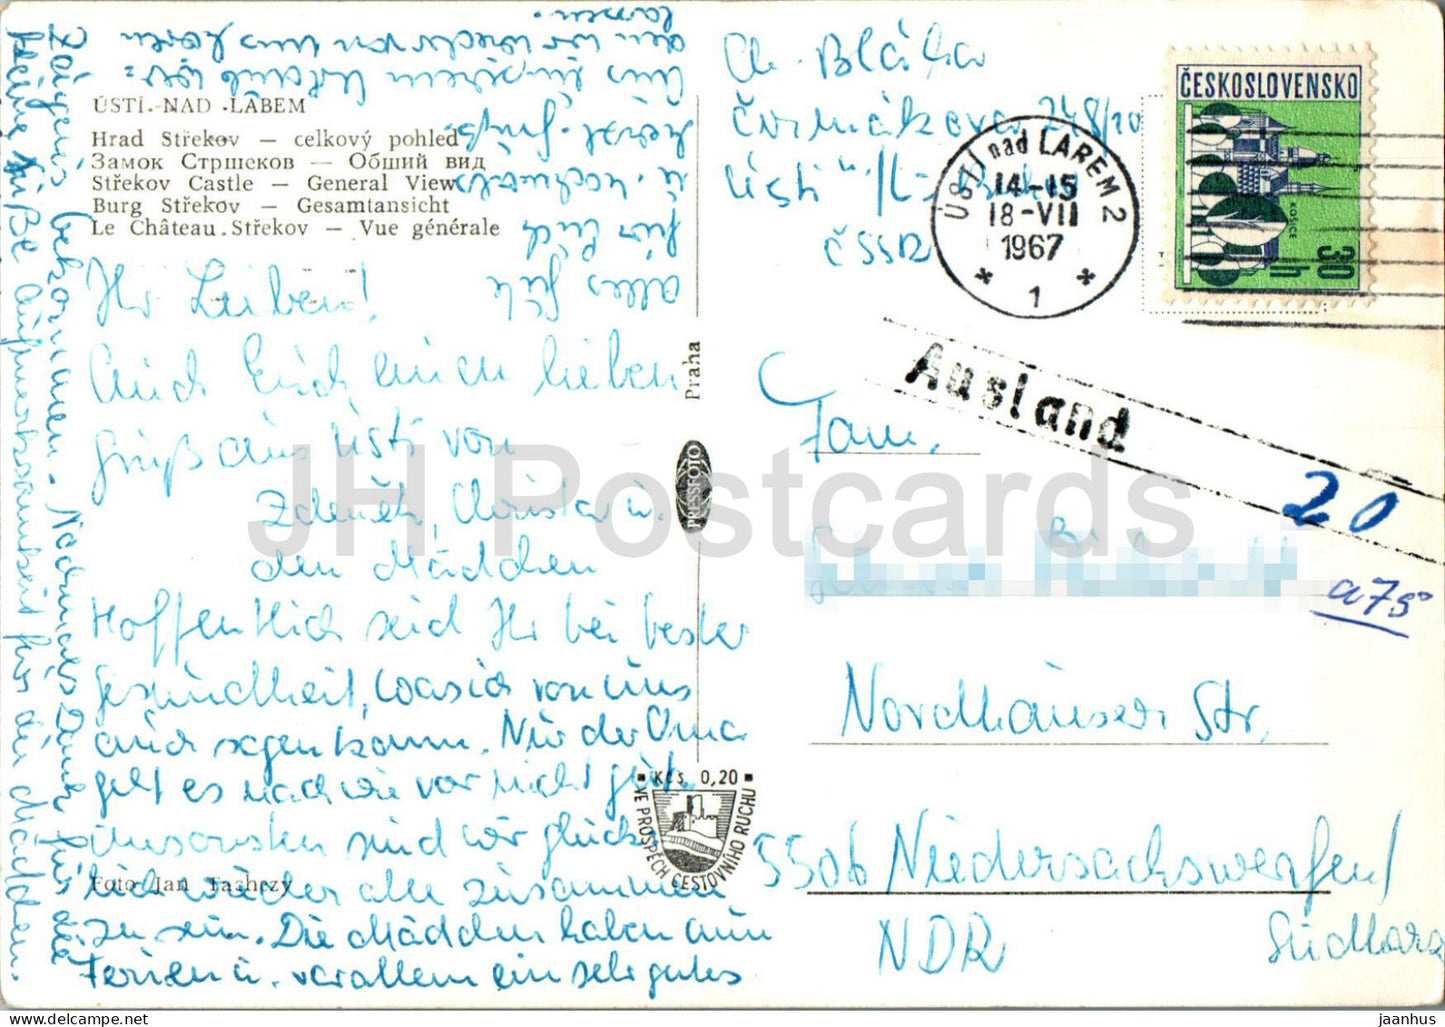 ÚSTÍ NAD LABEM
Hrad Střekov — celkový pohled
Замок Стршеков — Общий вид
Střekov Castle — General View
Burg Střekov — Gesamtansicht
Le Château Střekov — Vue générale
Ihr Lieben!
Auch Euch einen lieben
Gruß aus Ústí von
Zdeněk, Christa u.
den Mädchen
Hoffentlich seid Ihr bei bester
Gesundheit, was ich von uns
auch sagen kann. Nur der Oma
geht es nach wie vor nicht gut.
Ansonsten sind wir glück-
lich wieder alle zusammen
zu sein. Die Mädchen haben nun
Ferien u. vor allem ein sehr gutes
Zeugnis bekommen. Nochmals Dank für die
kleine süße Aufmerksamkeit für die Mädchen.
alles
für Euch
u.
uns
den wir von uns hören
lassen.
Foto Jan Tachezy
Praha
PRESSFOTO
Kčs 0,20
VE PROSPĚCH CESTOVNÍHO RUCHU
Ch. Bláha
Čermákova 248/10
Ústí n/L
ČSSR
ÚSTÍ nad LABEM 2
14-15
18-VII
1967
1
ČESKOSLOVENSKO
KOŠICE
30 h
Ausland
20
a75
Fam.
Nordhäuser Str.
5506 Niedersachswerfen/
Südharz
NDR
JH Postcards
jaanhus ⓘ eBay